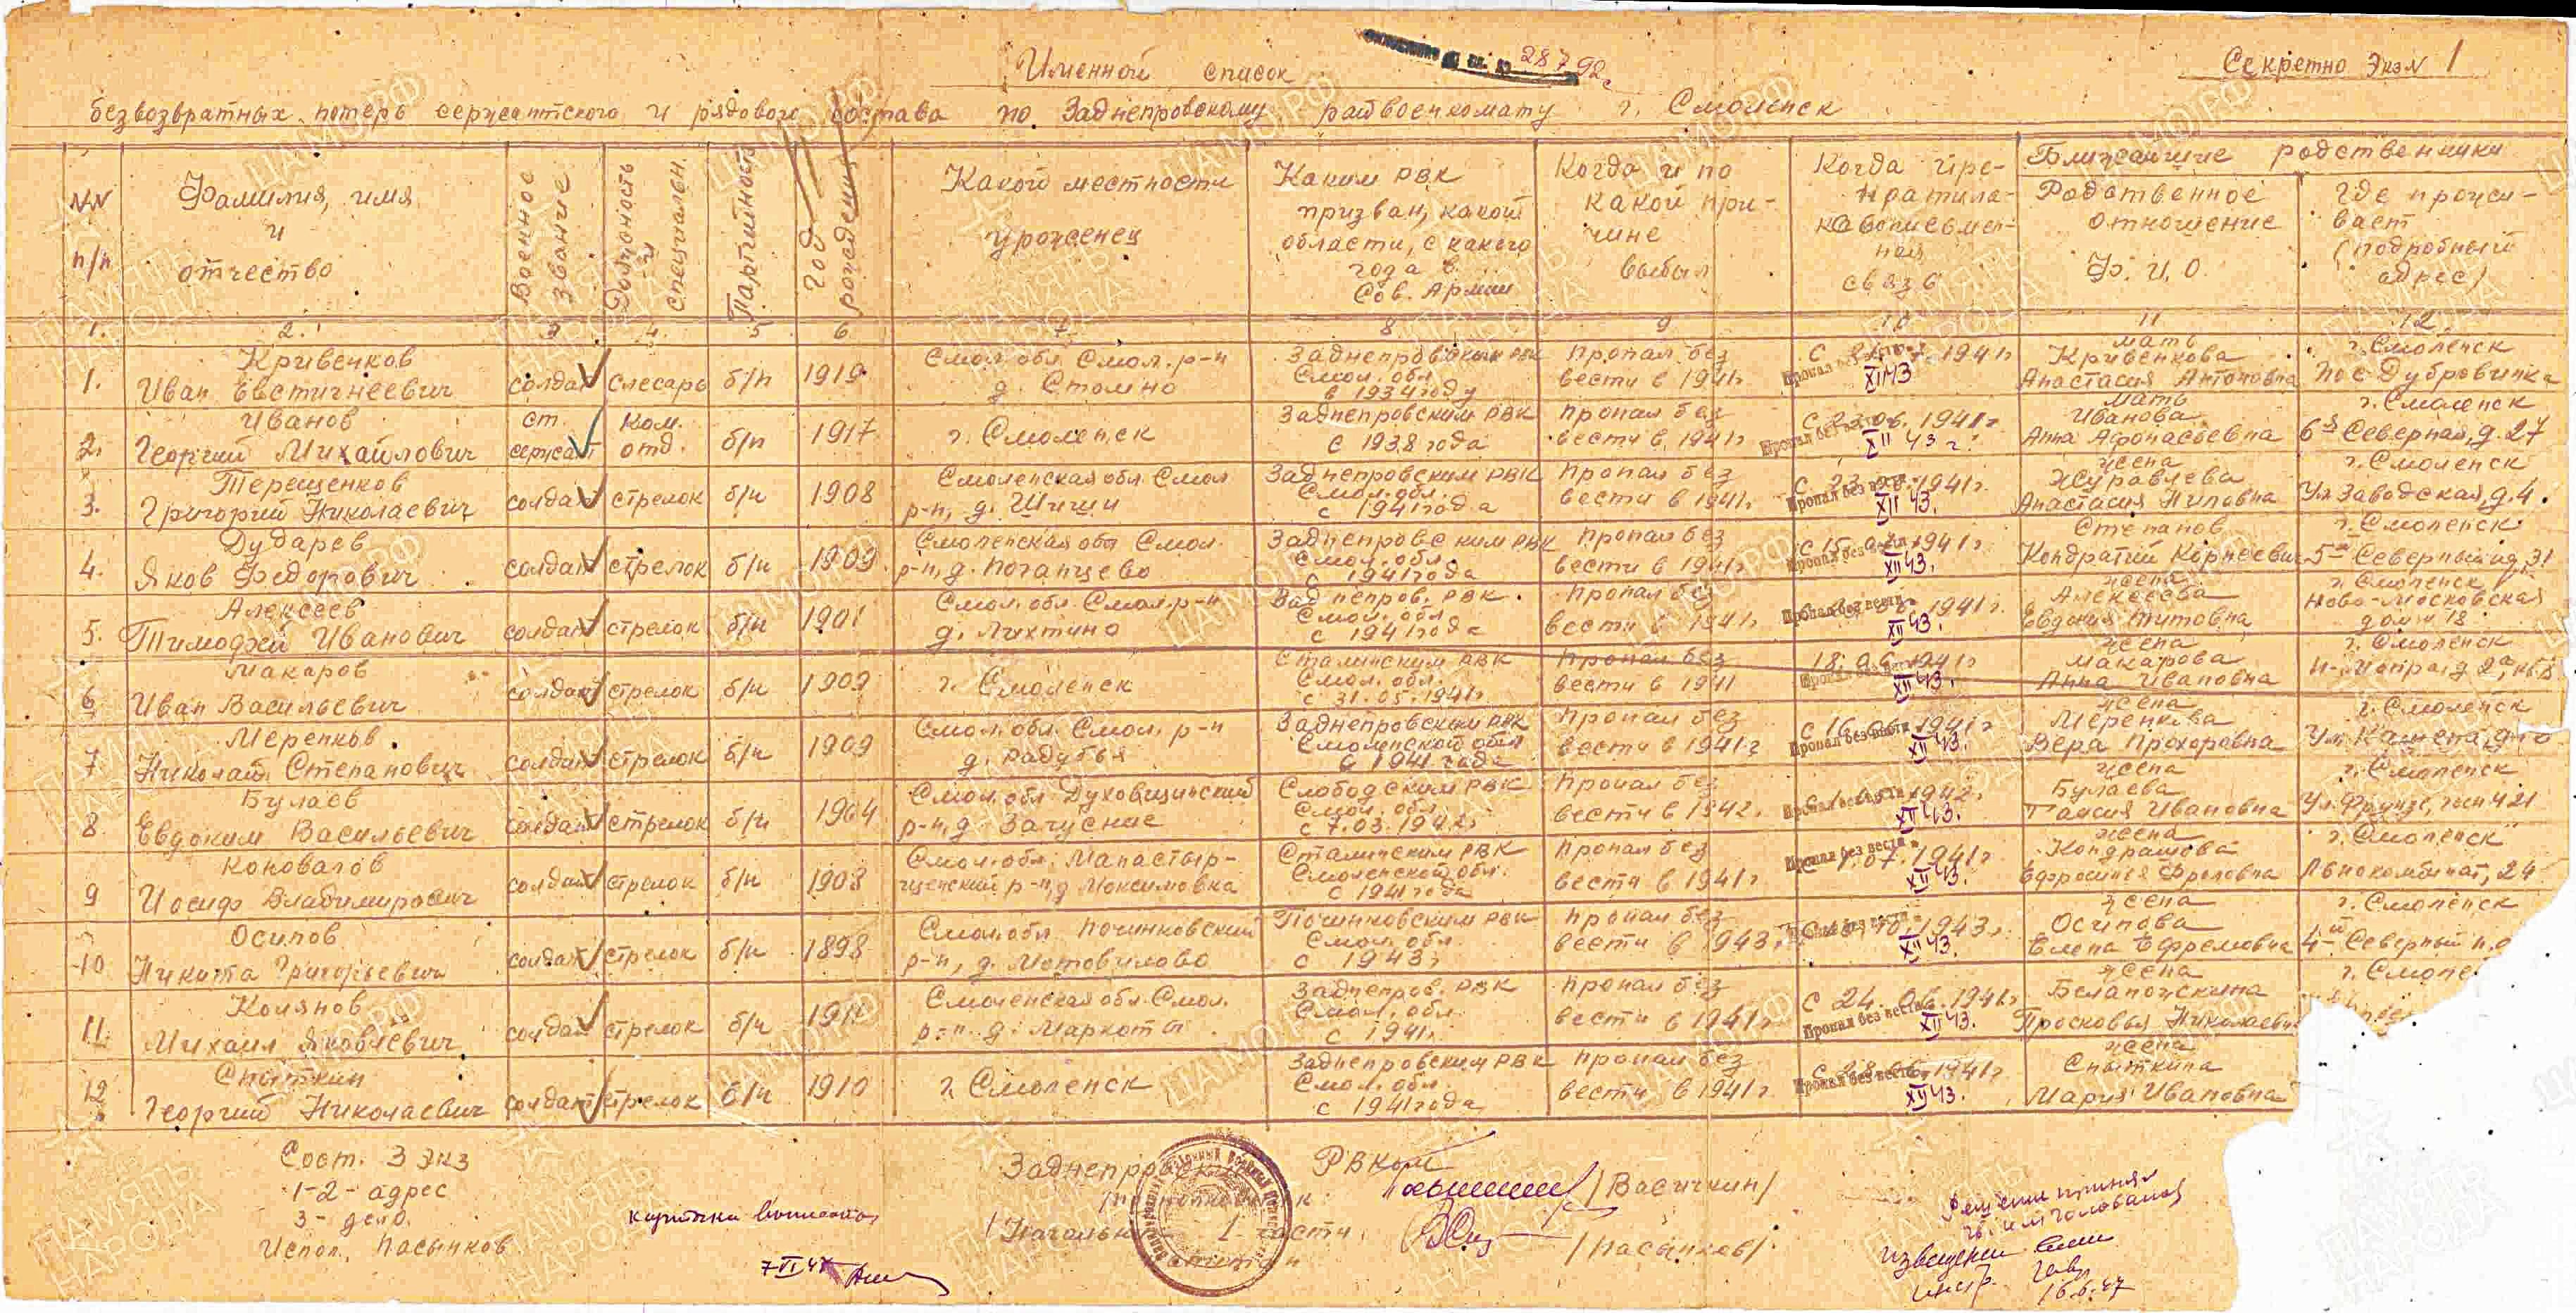 Секретно Экз N 1
28792с
Именной список
безвозвратных потерь сержантского и рядового состава по Заднепровскому райвоенкомату г. Смоленск
NN п/п
Фамилия, имя и отчество
Военное звание
Должность и специальн.
Партийность
Год рождения
Какой местности уроженец
Каким РВК призван, какой области, с какого года в Сов. Армии
Когда и по какой причине выбыл
Когда прекратилась письменная связь
Ближайшие родственники
Родственное отношение Ф. И. О.
Где проживает (подробный адрес)
1. 2. 3 4. 5 6. 7 8 9 10 11 12
1. Кривенков Иван Евстигнеевич солдат слесарь б/п 1919 Смол. обл. Смол. р-н д. Столно Заднепровским РВК Смол. обл. в 1939 году Пропал без вести в 1941г. Пропал без вести XII 43 мать Кривенкова Анастасия Антоновна г. Смоленск пос. Дубровинка
2. Иванов Георгий Михайлович ст. сержант Ком. отд. б/п 1917 г. Смоленск Заднепровским РВК с 1938 года Пропал без вести в 1941г. Пропал без вести XII 43 г. мать Иванова Анна Афонасьевна г. Смоленск 6я Северная, д. 27
3. Терещенков Григорий Николаевич солдат стрелок б/п 1908 Смоленская обл. Смол р-н, д. Шиши Заднепровским РВК Смол. обл. с 1941 года Пропал без вести в 1941г. Пропал без вести XII 43. жена Журавлева Анастасия Ниловна г. Смоленск Ул. Заводская, д. 4.
4. Дударев Яков Федорович солдат стрелок б/п 1909 Смоленская обл Смол. р-н, д. Поганцево Заднепровским РВК Смол. обл. с 1941 года Пропал без вести в 1941г. Пропал без вести XII 43. Степанов Кондратий Корнеевич г. Смоленск 5-й Северный 31
5. Алексеев Тимофей Иванович солдат стрелок б/п 1901 Смол. обл. Смол. р-н д. Лихтино Заднепров. РВК. Смол. обл с 1941 года Пропал без вести в 1941г. Пропал без вести XII 43. жена Алексеева Евдокия Титовна г. Смоленск Ново-Московская дом N 18
6 Макаров Иван Васильевич солдат стрелок б/п 1909 г. Смоленск Сталинским РВК Смол. обл. с 31.05.1941г. Пропал без вести в 1941 18.06.1941г XII 43. жена Макарова Анна Ивановна г. Смоленск
7 Меренков Николай Степанович солдат стрелок б/п 1909 Смол. обл. Смол. р-н д. Радубья Заднепровским РВК Смоленской обл. с 1941 года Пропал без вести в 1941г с 16.06.1941г Пропал без вести XII 43. жена Меренкова Вера Прохоровна г. Смоленск
8 Булаев Евдоким Васильевич солдат стрелок б/п 1904 Смол. обл. Духовщинский р-н, д. Загусние Слободским РВК Смол. обл. с 7.03.1942г. Пропал без вести в 1942. Пропал без вести XII 43. жена Булаева Таисия Ивановна г. Смоленск Ул. Фрунзе,
9 Коновалов Иосиф Владимирович солдат стрелок б/п 1908 Смол. обл. Манастырщенский р-н, д Максимовка Сталинским РВК Смоленской обл. с 1941 года Пропал без вести в 1941г Пропал без вести XII 43. жена Кондрашова Ефросинья Фроловна г. Смоленск Льнокомбинат, 24
10 Осипов Никита Григорьевич солдат стрелок б/п 1898 Смол. обл Починковский р-н, д. Мотовилово Починковским РВК Смол. обл. с 1943г Пропал без вести в 1943г. XII 43. жена Осипова Елена Ефремовна г. Смоленск 4-й Северный
11. Коянов Михаил Яковлевич солдат стрелок б/п 1911 Смоленская обл. Смол. р-н д. Маркотт Заднепров. РВК Смол. обл. с 1941г. Пропал без вести в 1941г с 24.06.1941г Пропал без вести XII 43. жена Белапожскина Просковья Николаевн г. Смоле
12. Сныткин Георгий Николаевич солдат стрелок б/п 1910 г. Смоленск Заднепровским РВК Смол. обл. с 1941 года Пропал без вести в 1941г. с 28.06.1941г Пропал без вести XII 43. жена Сныткина Мария Ивановна
Сост. 3 экз
1-2- адрес
3- дело.
Испол. Пасынков
7 VI 47
РВКом
/Васичкин/
Начальник 1 части
/Пасынков/
извещен
16.6.47
ПАМЯТЬ НАРОДА
ЦАМО РФ